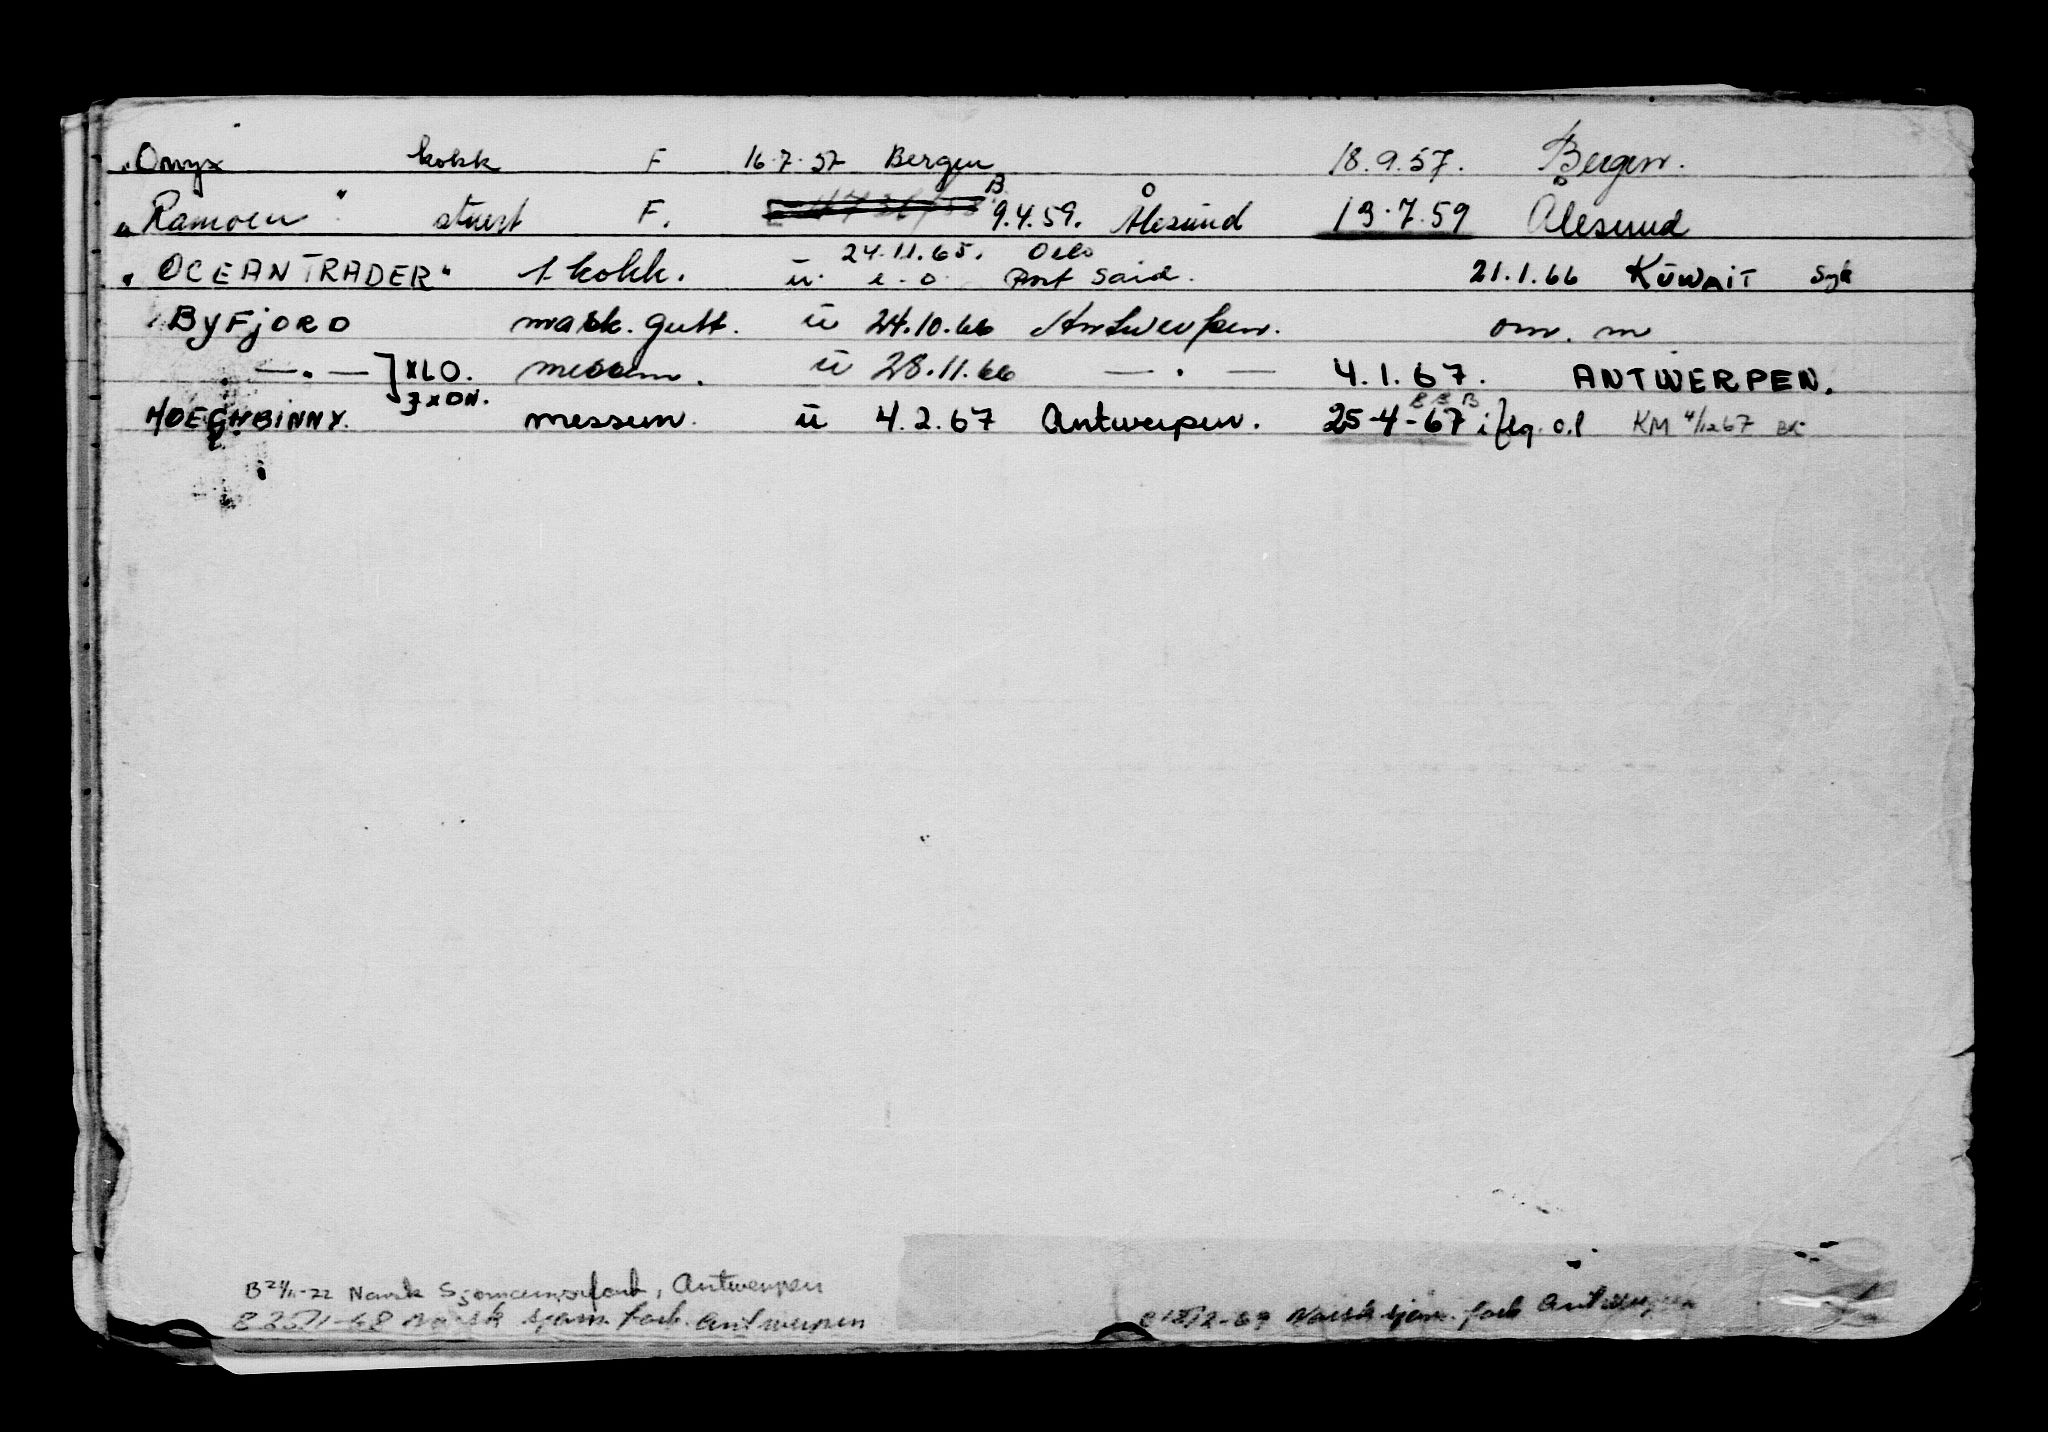 "Onyx kokk F 16.7.57 Bergen 18.9.57. Bergen.
"Ramoen" stuert F. B 9.4.59. Ålesund 19.7.59 Ålesund
24.11.65. Oslo
"OCEANTRADER" 1. kokk. ū e.o. Port Said. 21.1.66 KŪWAIT Syk
BYFJORD mask. gutt. ū 24.10.66 Antwerpen. om. m
— . — ] XLO. messm. ū 28.11.66 — . — 4.1.67. ANTWERPEN.
HOEGHBINNY. messem. ū 4.2.67 Antwerpen. 25-4-67 i flg. o.l KM 4/1267 BK
Norsk Sjømannsforb., Antwerpen
Norsk sjøm. forb. Antwerpen
Norsk sjøm. forb Antwerpen